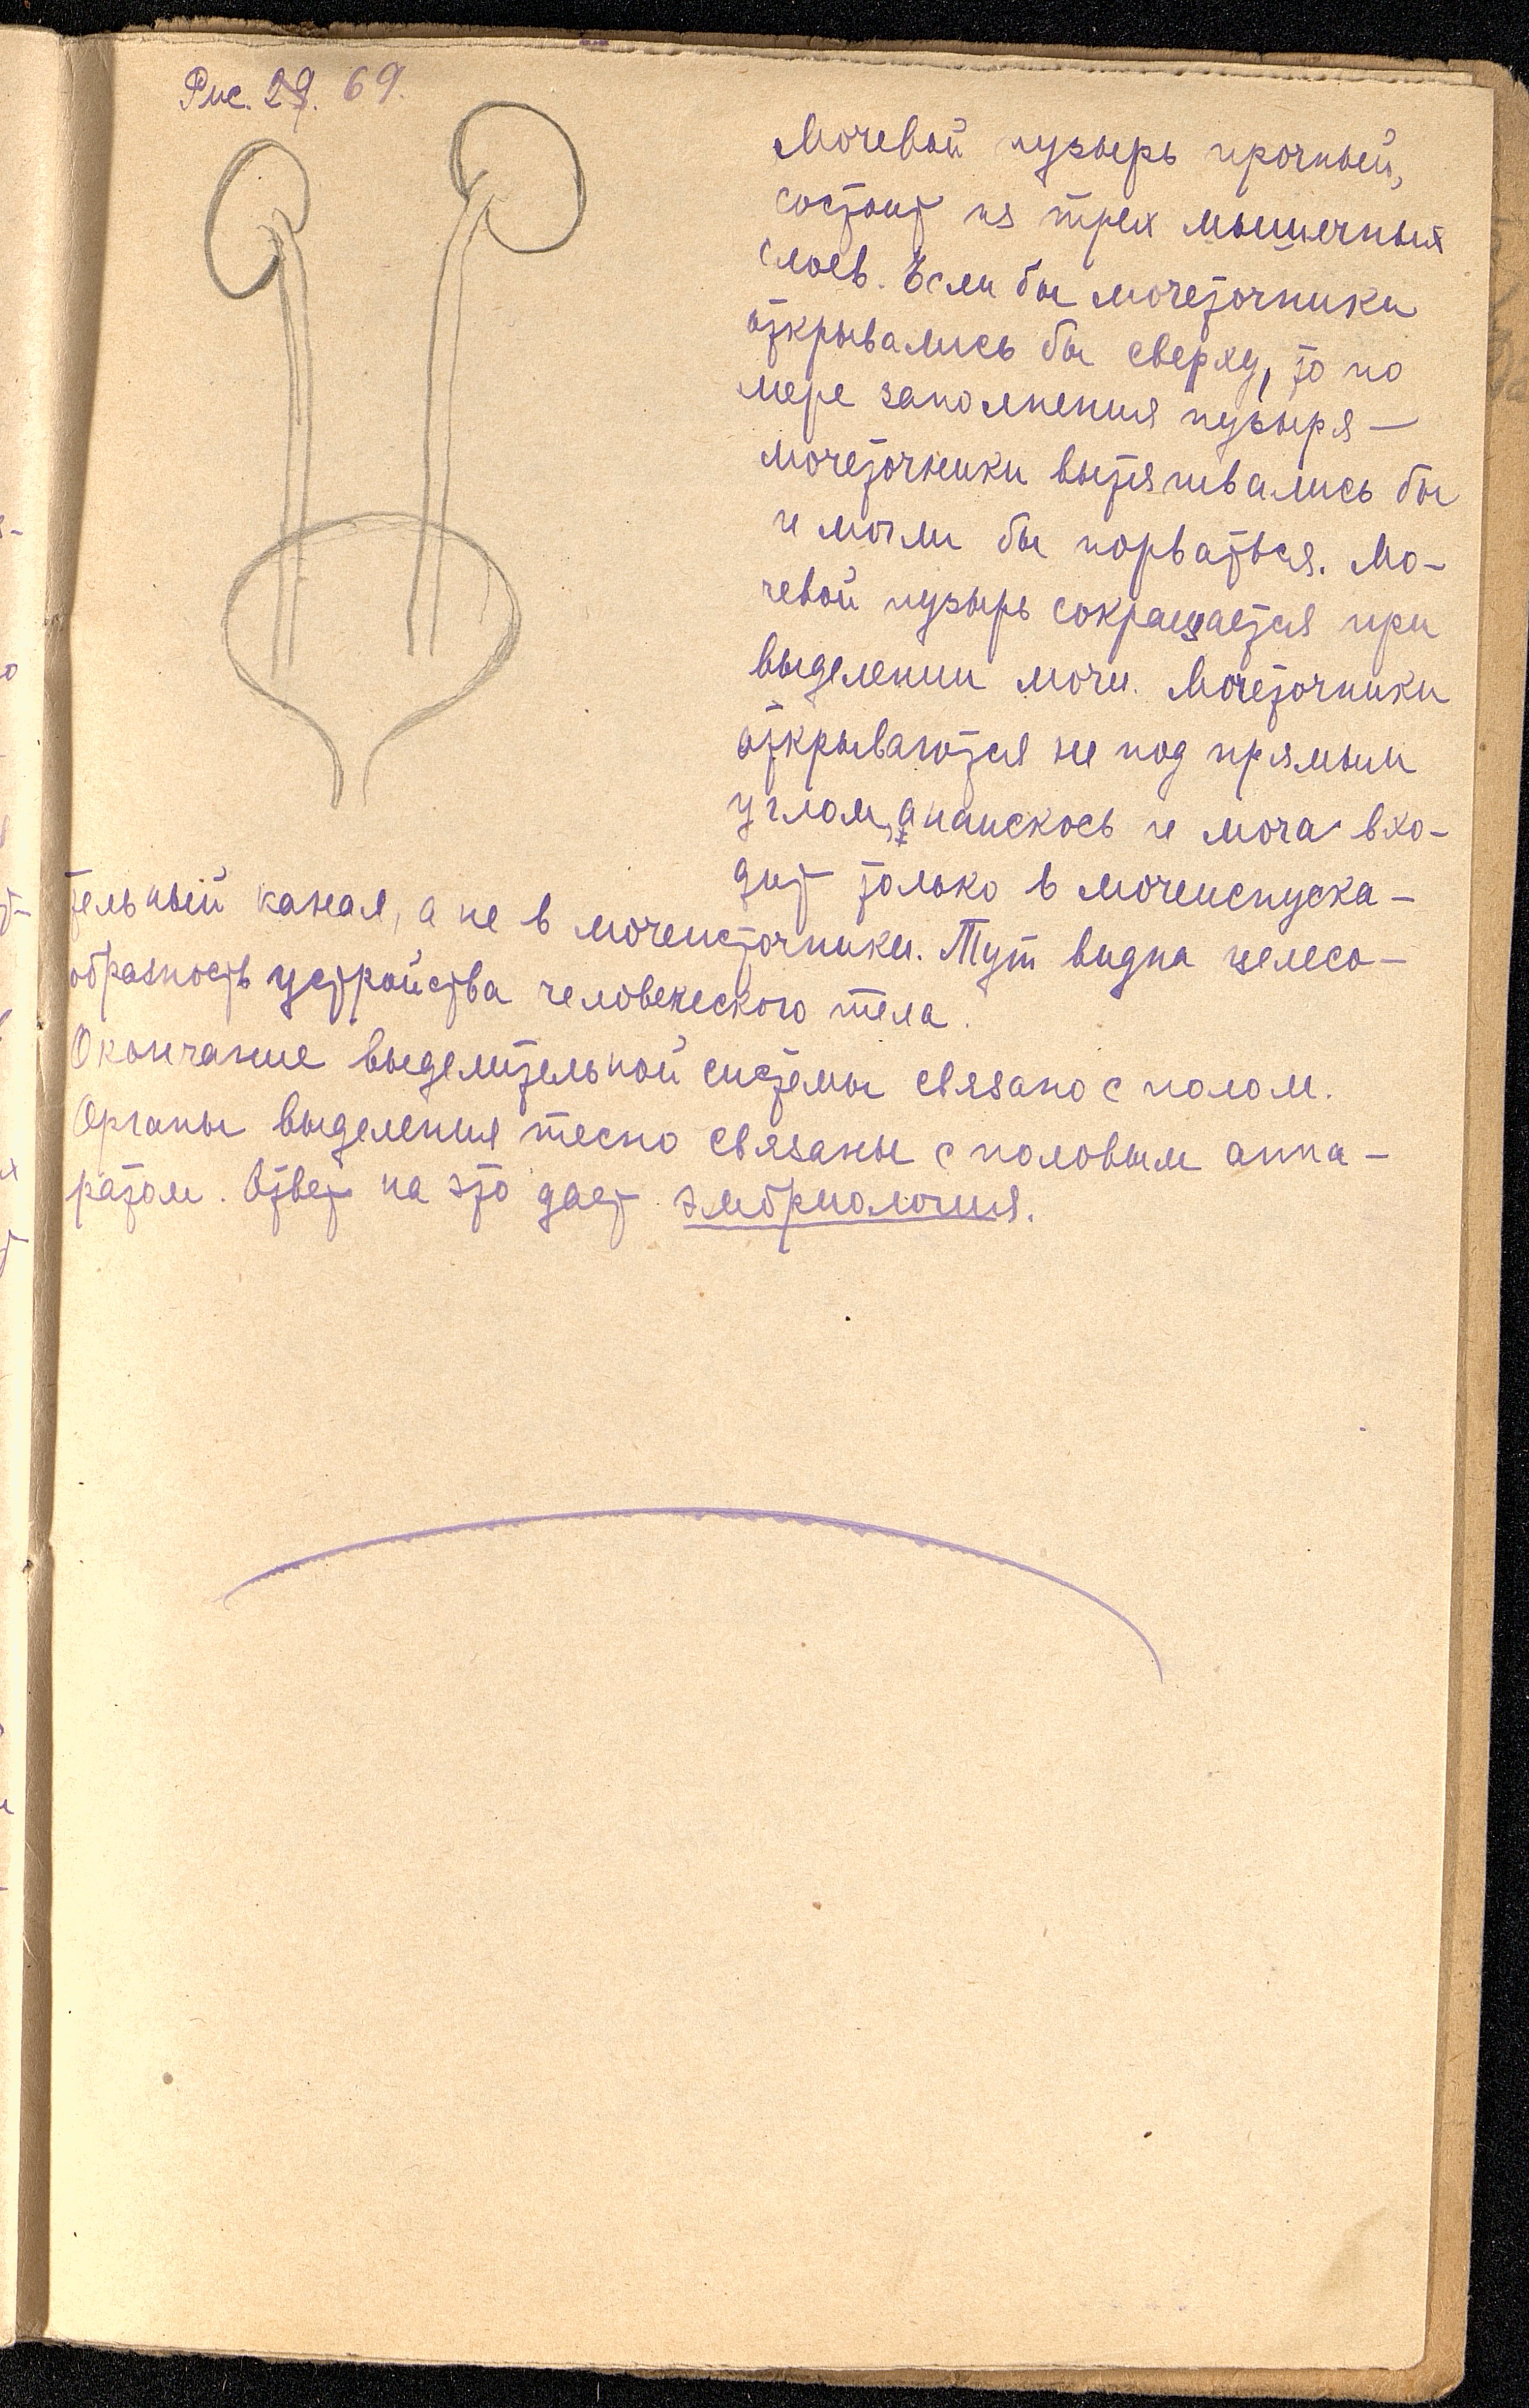 Рис. 29. 69.
Мочевой пузырь прочный,
состоит из трех мышечных
слоев. Если бы мочеточники
открывались бы сверху, то по
мере заполнения пузыря —
мочеточники вытягивались бы
и могли бы порваться. Мо-
чевой пузырь сокращается при
выделении мочи. Мочеточники
открываются не под прямым
углом, а наискось и моча вхо-
дит только в мочеиспуска-
тельный канал, а не в мочеисточники. Тут видна целесо-
образность устройства человеческого тела.
Окончание выделительной системы связано с полом.
Органы выделения тесно связаны с половым аппа-
ратом. Ответ на это дает эмбриология.